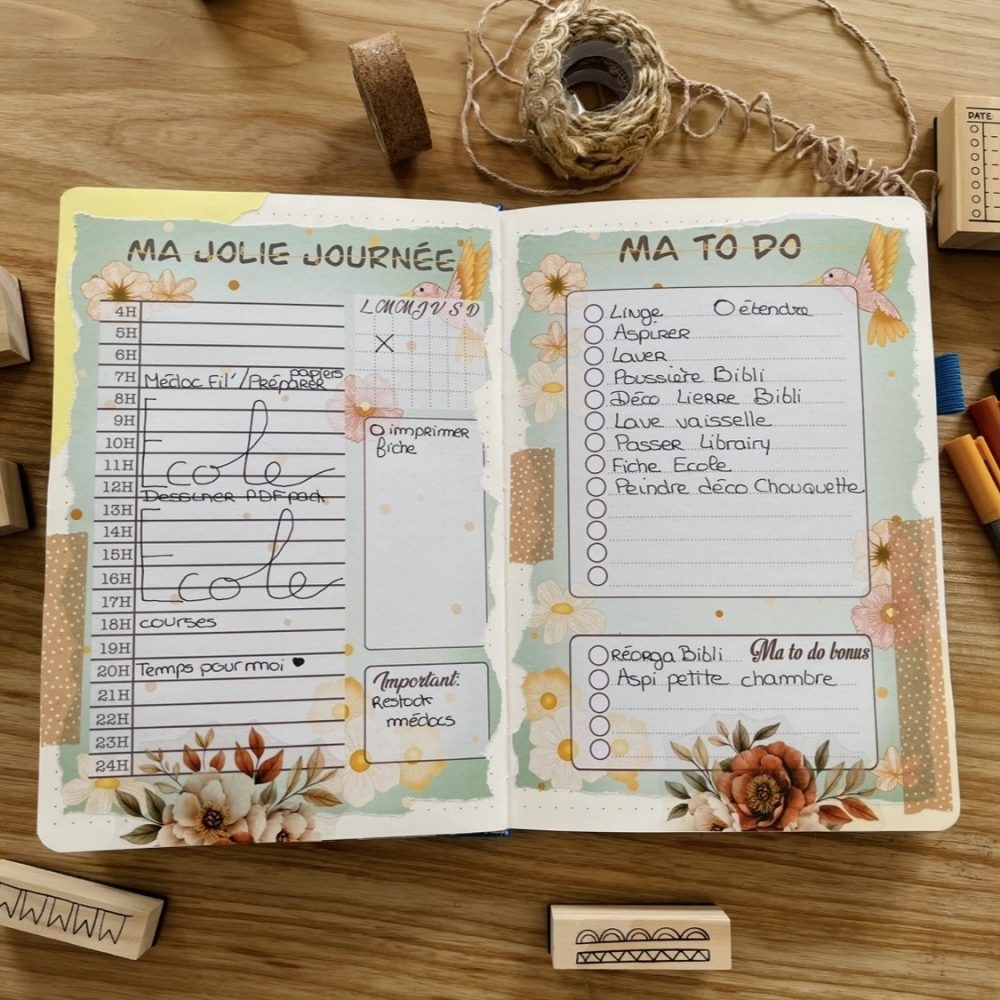 DATE:
MA JOLIE JOURNÉE
L M M J V S D
X
4H
5H
6H
7H Médoc Fil'/Préparer papiers
8H
9H
10H
11H
École
12H Dessiner PDF pack
13H
14H
15H
16H
École
17H
18H courses
19H
20H Temps pour moi ♥
21H
22H
23H
24H
O imprimer
fiche
Important:
Restock
médocs
MA TO DO
Linge O étendre
Aspirer
Laver
Poussière Bibli
Déco Lierre Bibli
Lave vaisselle
Passer Librairy
Fiche Ecole
Peindre déco Chouquette
Ma to do bonus
Réorga Bibli
Aspi petite chambre